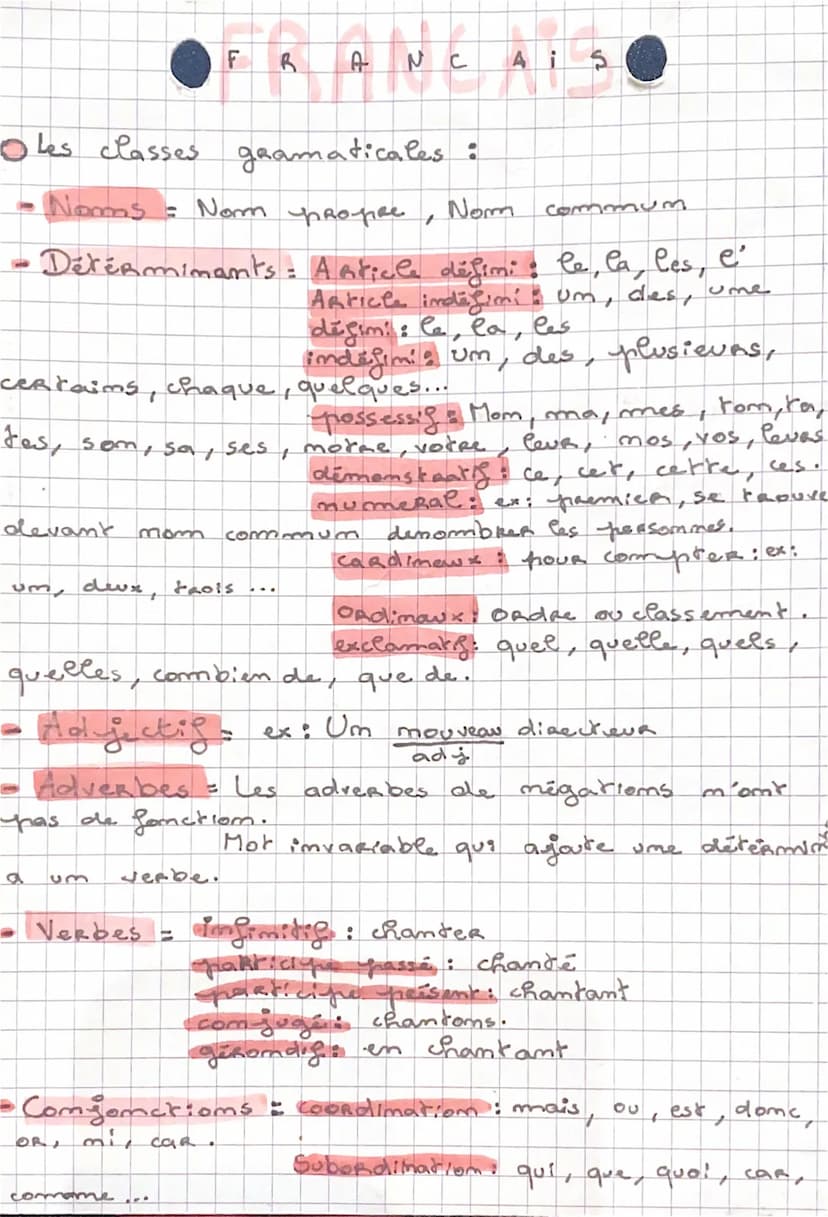 FRANCAIS
Les classes gramaticales :
- Noms = Nom propre, Nom commun
- Détérminants = Article défini : le, la, les, l'
Article indéfini : un, des, une
défini : le, la, les
indéfini : un, des, plusieurs,
certains, chaque, quelques...
possessif : Mon, ma, mes, ton, ta,
tes, son, sa, ses, notre, votre, leur, nos, vos, leurs
démonstratif : ce, cet, cette, ces.
numeral : ex: premier, se trouve
devant nom commum denombrer les personnes.
cardineux : pour compter : ex:
un, deux, trois ...
Ordinaux : ordre ou classement.
exclamatif : quel, quelle, quels,
quelles, combien de, que de.
- Adjectif = ex : Un nouveau directeur
adj
- Adverbes = Les adverbes de négations n'ont
pas de fonction.
Mot invariable qui ajoute une
a un verbe.
- Verbes = infinitif : chanter
participe passé : chanté
participe présent : chantant
conjugé : chantons.
gérondif : en chantant
- Conjonctions = coordination : mais, ou, est, donc,
or, ni, car.
Subordination : qui, que, quoi, car,
comme ...